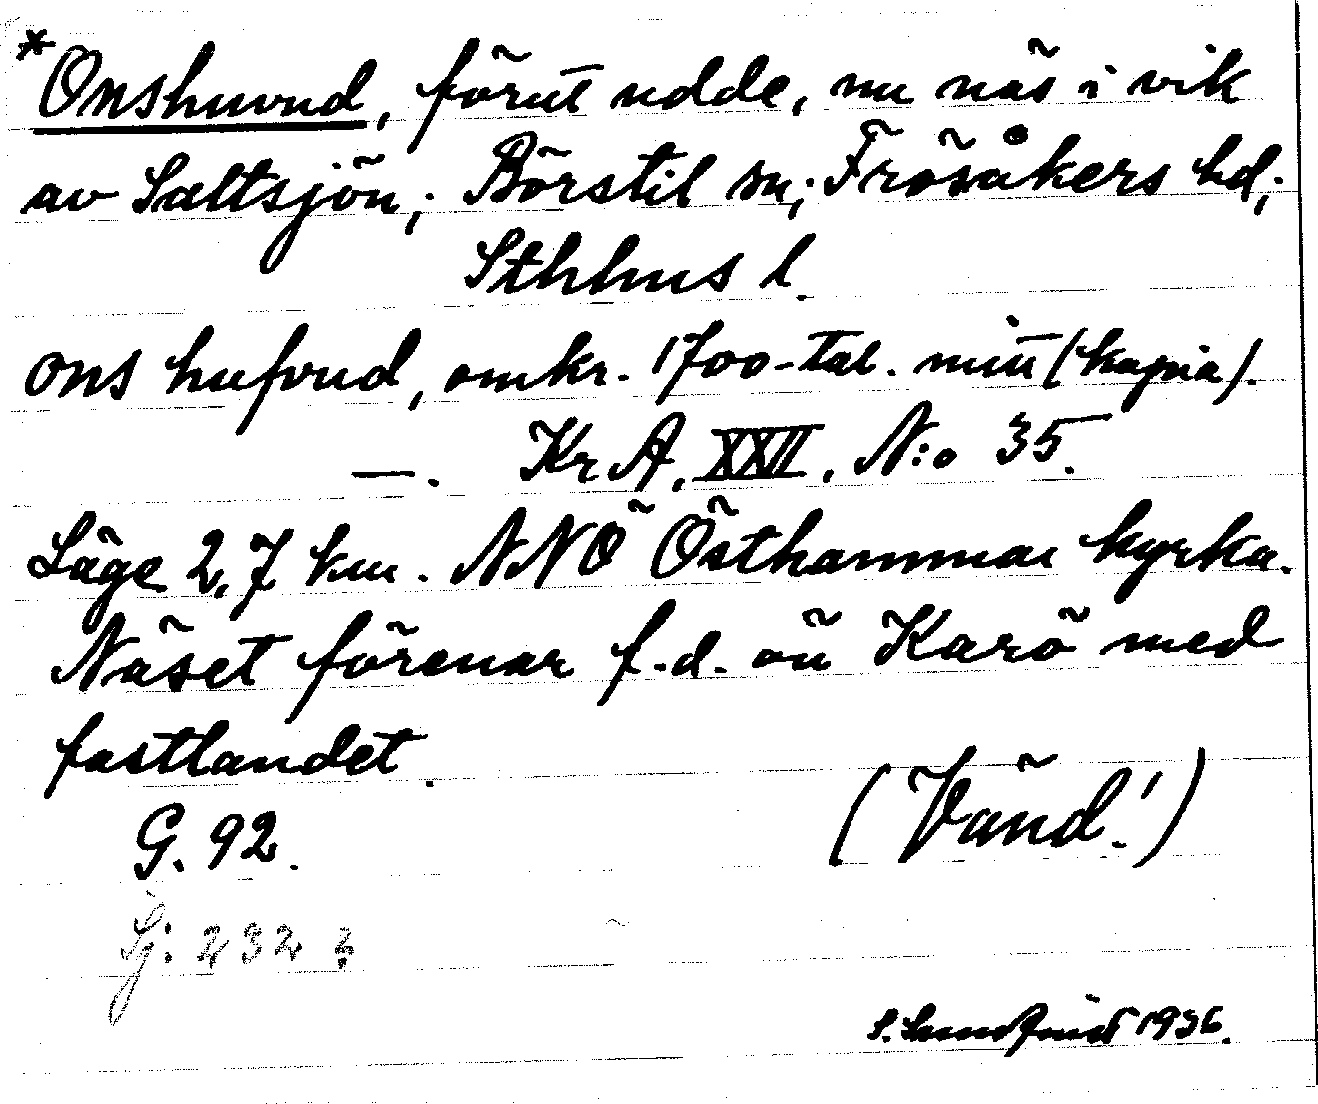 *Onshuvud, förut udde, nu näs i vik
av Saltsjön; Börstil sn; Frösåkers hd;
Sthlms l.
ons hufvud, omkr. 1700-tal. mitt (kopia).
—. Kr A, XXII, N:o 35.
Läge 2,7 km. NNÖ Östhammar kyrka.
Näset förenar f.d. ön Karö med
fastlandet.
G. 92.
(Vänd!)
Sj: 232 3
S. Lundquist 1936.